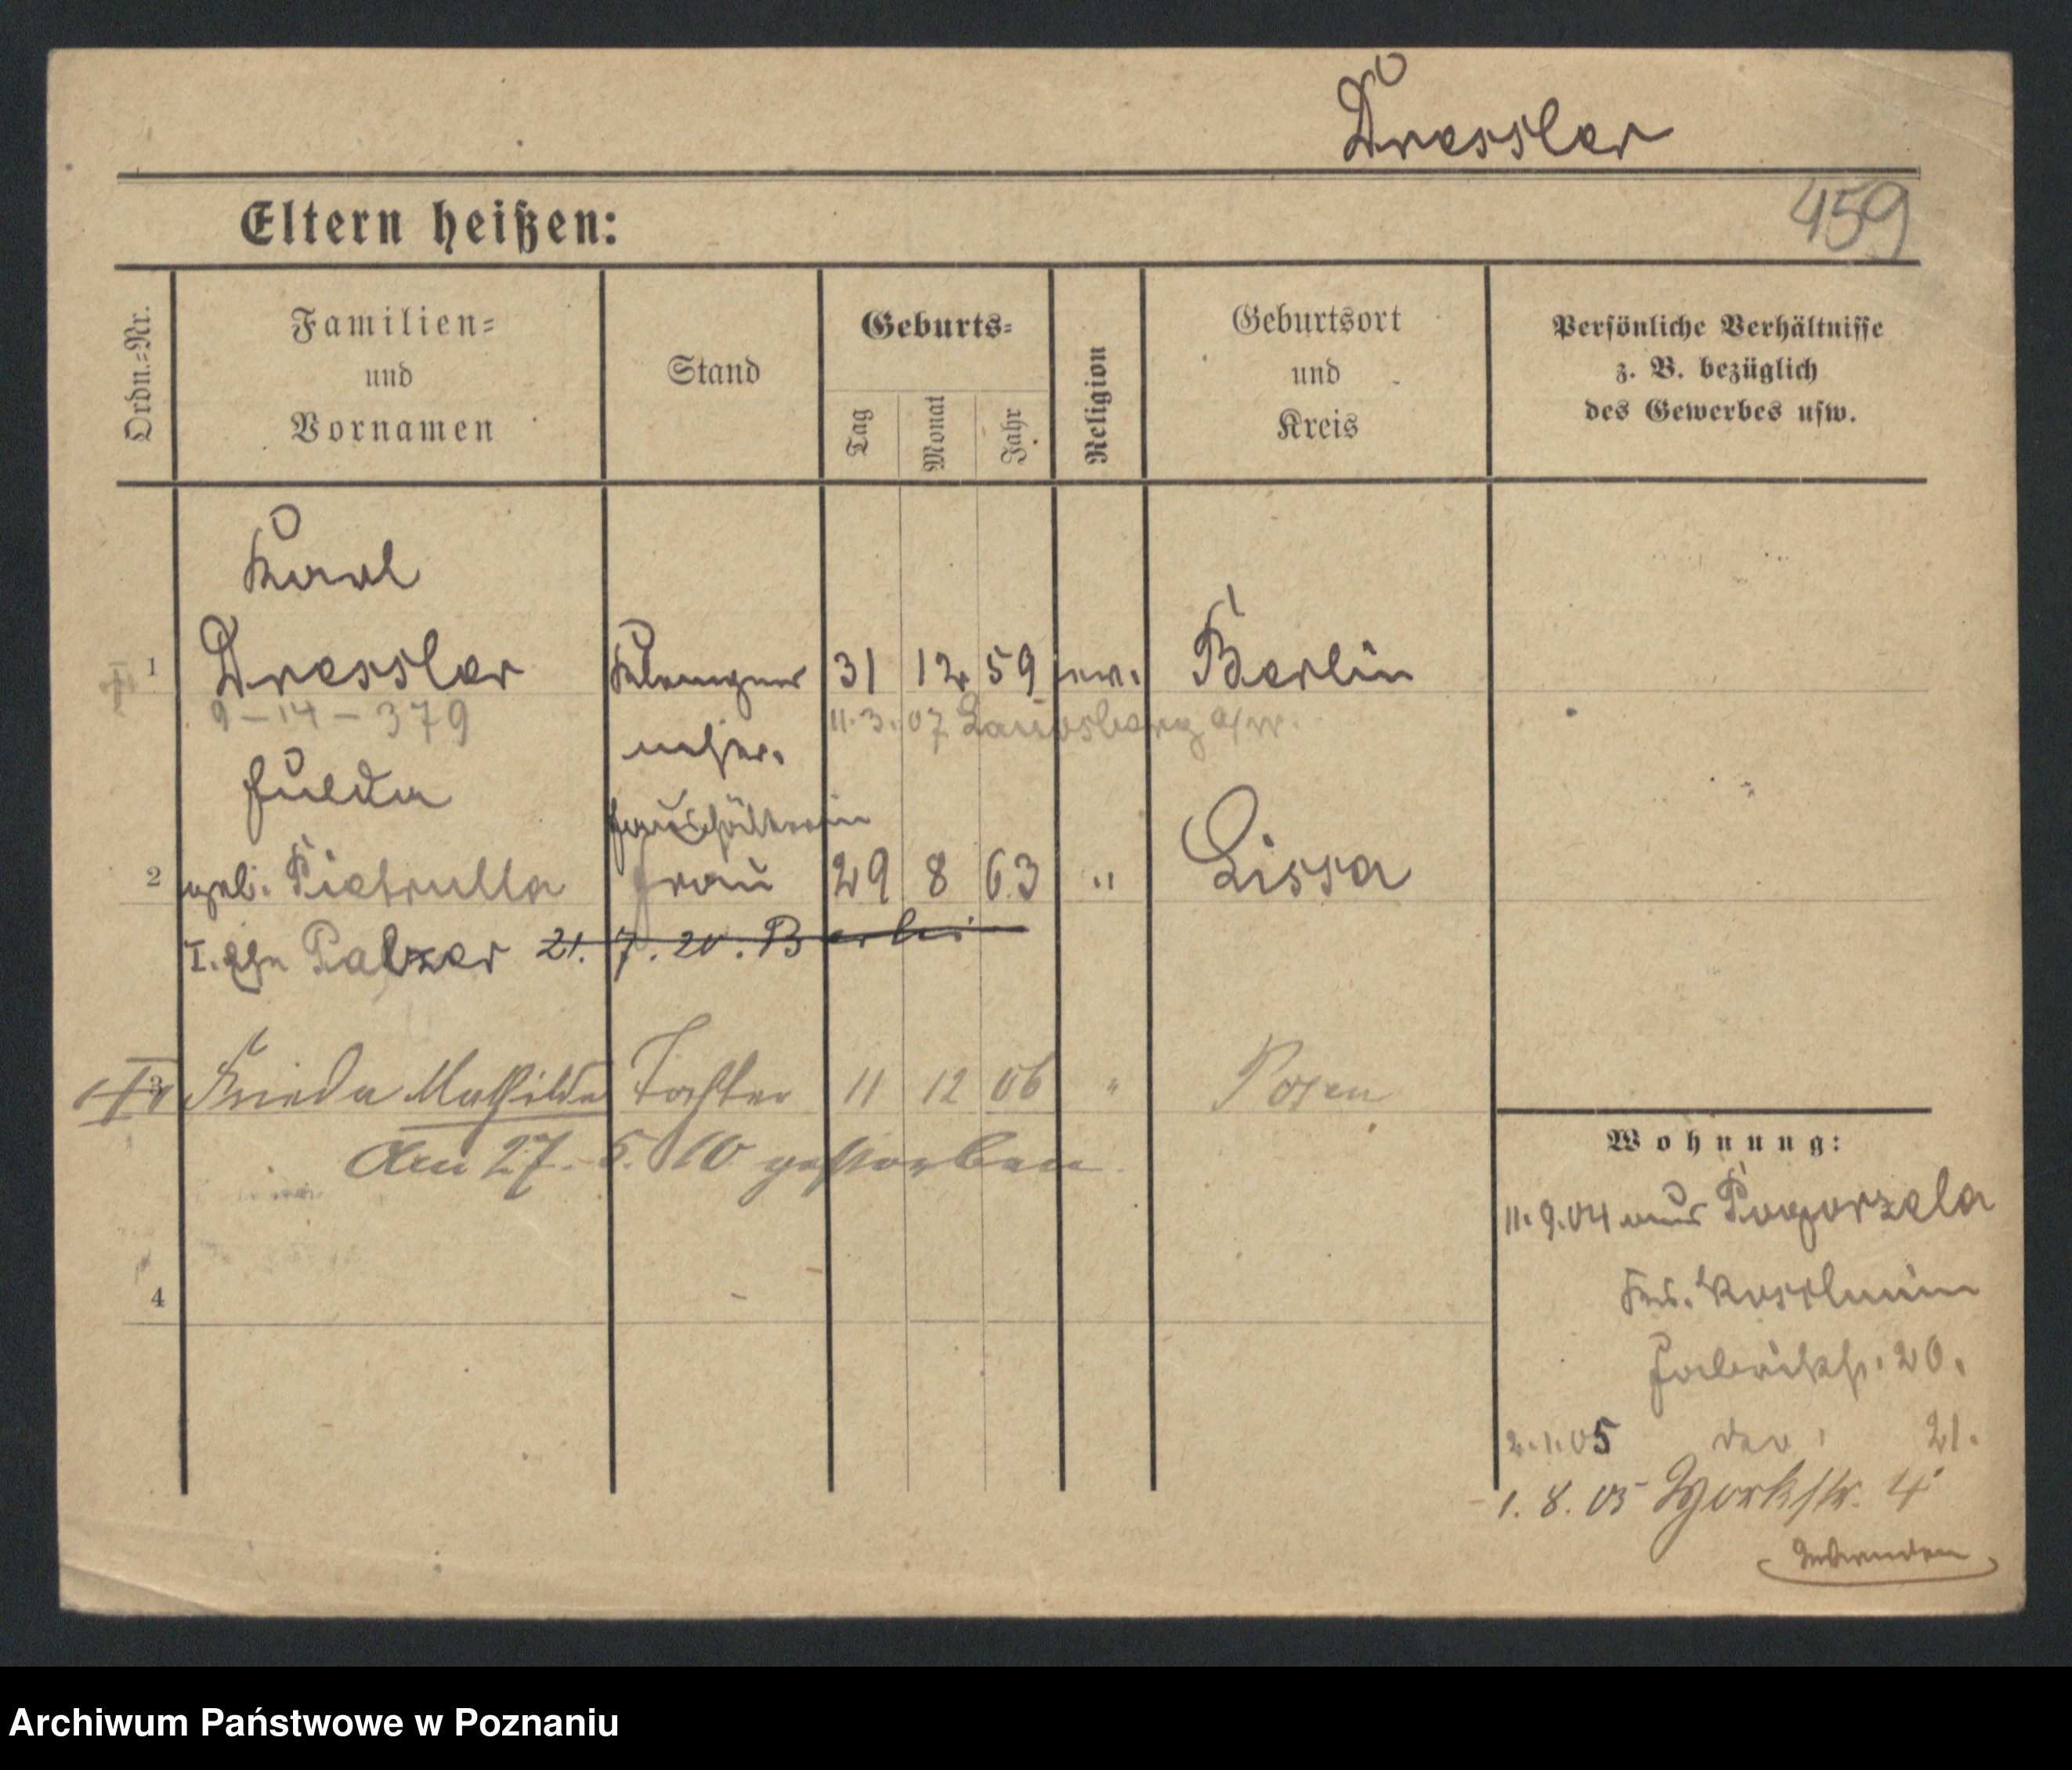 Dressler
459
Eltern heißen:
Ordn.-Nr.
Familien-
und
Vornamen
Stand
Geburts-
Tag
Monat
Jahr
Religion
Geburtsort
und
Kreis
Persönliche Verhältnisse
z. B. bezüglich
des Gewerbes usw.
Karl
1 Dressler Klempner 31 12 59 ev. Berlin
9-14-379 11.3.07 Landsberg a/W.
Hulda
Haushälterin
2 geb. Pietrulla Frau 29 8 63 " Lissa
I. Ehe Palzer 21. 7. 20. Berlin
3 Frieda Mathilde Tochter 11 12 06 " Posen
Am 27. 5. 10 gestorben.
4
Wohnung:
11.9.04 aus Pogorzela
Krs. Koschmin
Fabrikstr. 20.
2.1.05 21.
1. 8. 05 Yorkstr. 4
Umwenden
Archiwum Państwowe w Poznaniu